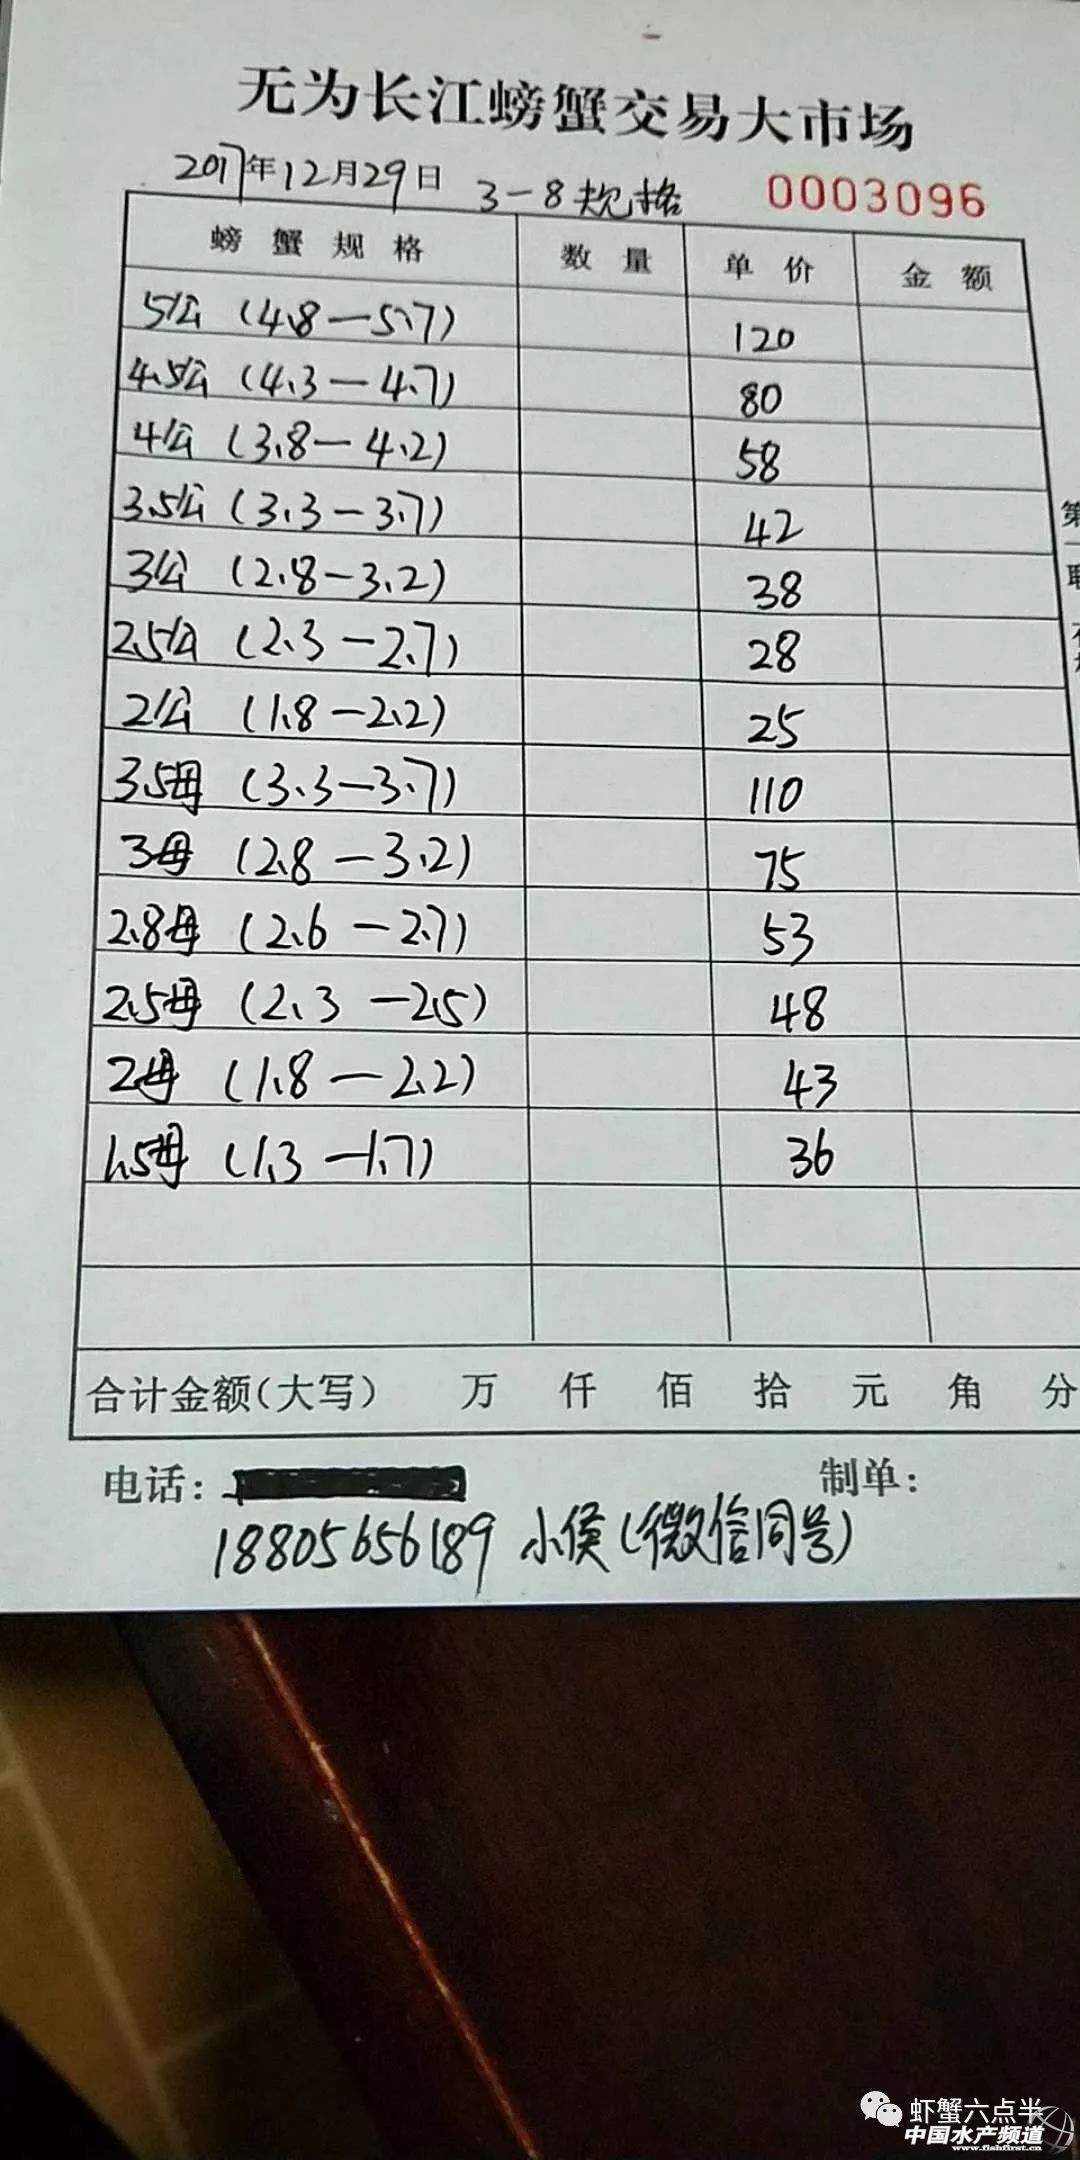 无为长江螃蟹交易大市场
2017年12月29日 3-8规格 0003096
螃蟹规格 数量 单价 金额
5公 (4.8—5.7) 120
4.5公 (4.3—4.7) 80
4公 (3.8—4.2) 58
3.5公 (3.3—3.7) 42
3公 (2.8—3.2) 38
2.5公 (2.3—2.7) 28
2公 (1.8—2.2) 25
3.5母 (3.3—3.7) 110
3母 (2.8—3.2) 75
2.8母 (2.6—2.7) 53
2.5母 (2.3—2.5) 48
2母 (1.8—2.2) 43
1.5母 (1.3—1.7) 36
合计金额(大写) 万 仟 佰 拾 元 角 分
电话: 制单:
18805656189 小侯(微信同号)
第一联
虾蟹六点半
中国水产频道
www.fishfirst.cn